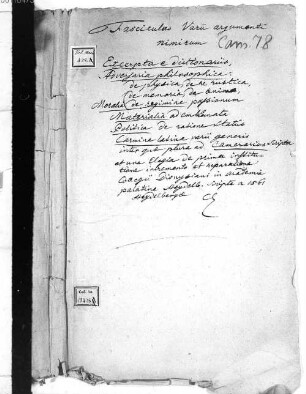 Fasciculus Varii argumenti
nimirum
Cam. 78
Excerpta e dictionario,
Adversaria philosophica:
de physica, de re rustica,
de memoria, de anima,
Moralia de regimine passionum
Materialia ad emblemata
Politica de ratione status
Carmina latina varii generis
inter quae plura ad Camerarium scripta
et una Elegia de prima institu-
tione incremento et reparatione
Collegii Dionysiani in Academia
palatina Heydelb. scripta a 1561
Heydelbergae